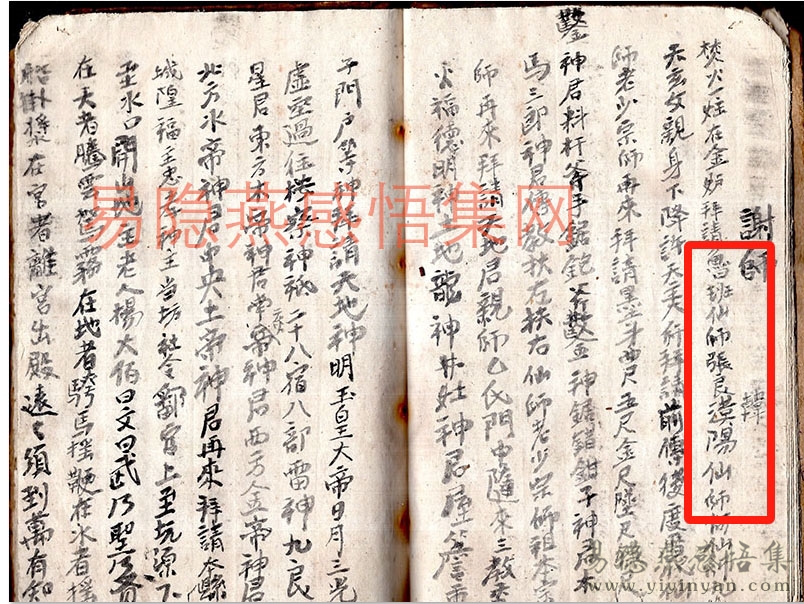 謝師
焚火一炷在金炉拜請魯班仙師張良 陽仙師 仙
天玄女親身下降許天大行拜請前傳後度
師老少宗師再來拜請墨斗曲尺五尺金尺 尺
鑿神君料杆斧手鋸鉋斧鑿 神鋸 鉗子神君本
馬三郎神君傳教扶左扶右仙師老少宗師祖本宗
師再來拜請天地君親師 氏門中隨來三教
火福德明神土地龍神井灶神君屋簷童
子門户等神拜請天地神明玉皇大帝日月三光
虛空過往 察神祇二十八宿八部雷神九良
星君東方木帝神君 帝神君西方金帝神君
北方水帝神君中央土帝神君再來拜請本縣
城隍福主 神主当坊社令 官上至坑源下
至水口開地主老人楊大伯曰文曰武乃聖乃賢
在天者騰雲駕霧在地者騎馬摇鞭在水者摇
船掛槳在宮者離宮出殿遠遠須到萬有知
易隐燕感悟集网
易隱燕感悟集
www.yiyinyan.com